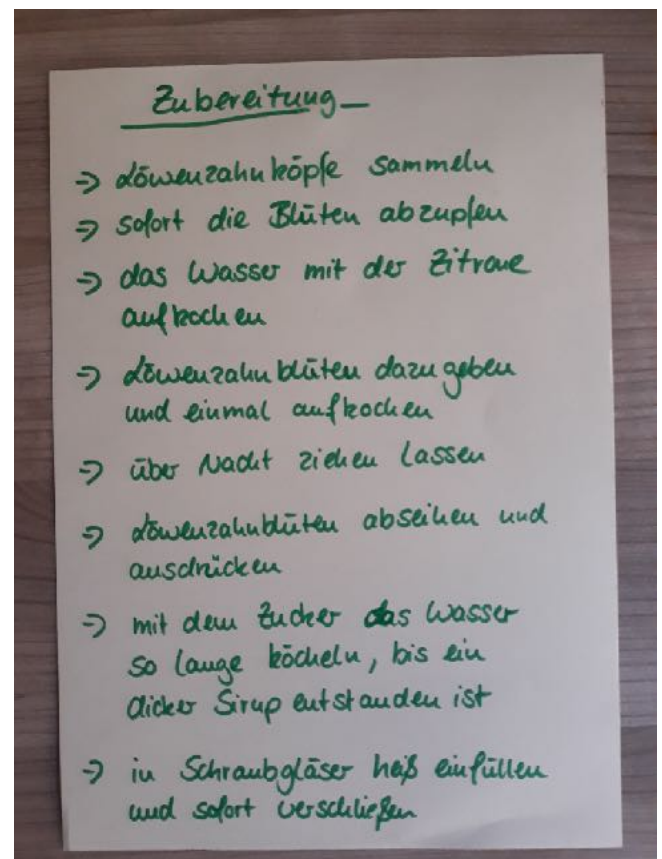 Zubereitung
→ Löwenzahnköpfe sammeln
→ sofort die Blüten abzupfen
→ das Wasser mit der Zitrone
aufkochen
→ Löwenzahnblüten dazugeben
und einmal aufkochen
→ über Nacht ziehen lassen
→ Löwenzahnblüten abseihen und
ausdrücken
→ mit dem Zucker das Wasser
so lange köcheln, bis ein
dicker Sirup entstanden ist
→ in Schraubgläser heiß einfüllen
und sofort verschließen